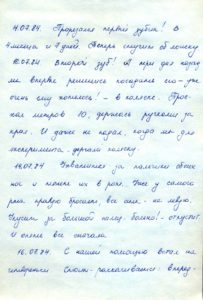 4.07.84. Прорезался первый зубик! В
4 месяца и 4 дней. Теперь стучит об ложку
10.07.84. Второй зуб! А три дня назад
мы впервые решились посадить его - уж
очень ему хотелось! - в коляске. Про-
ехал метров 10, держась ручками за
края. И даже не падал, когда мы для
эксперимента дергали коляску.
14.07.84 Ухватился за пальчики обеих
ног и тянет их в рот. Уже у самого
рта правую бросает, все силы - на левую.
Укусит за большой палец, больно! - отпустит.
И опять все сначала.
16.07.84. С нашей помощью встал на
четвереньки. Стоит - раскачивается: вперед-